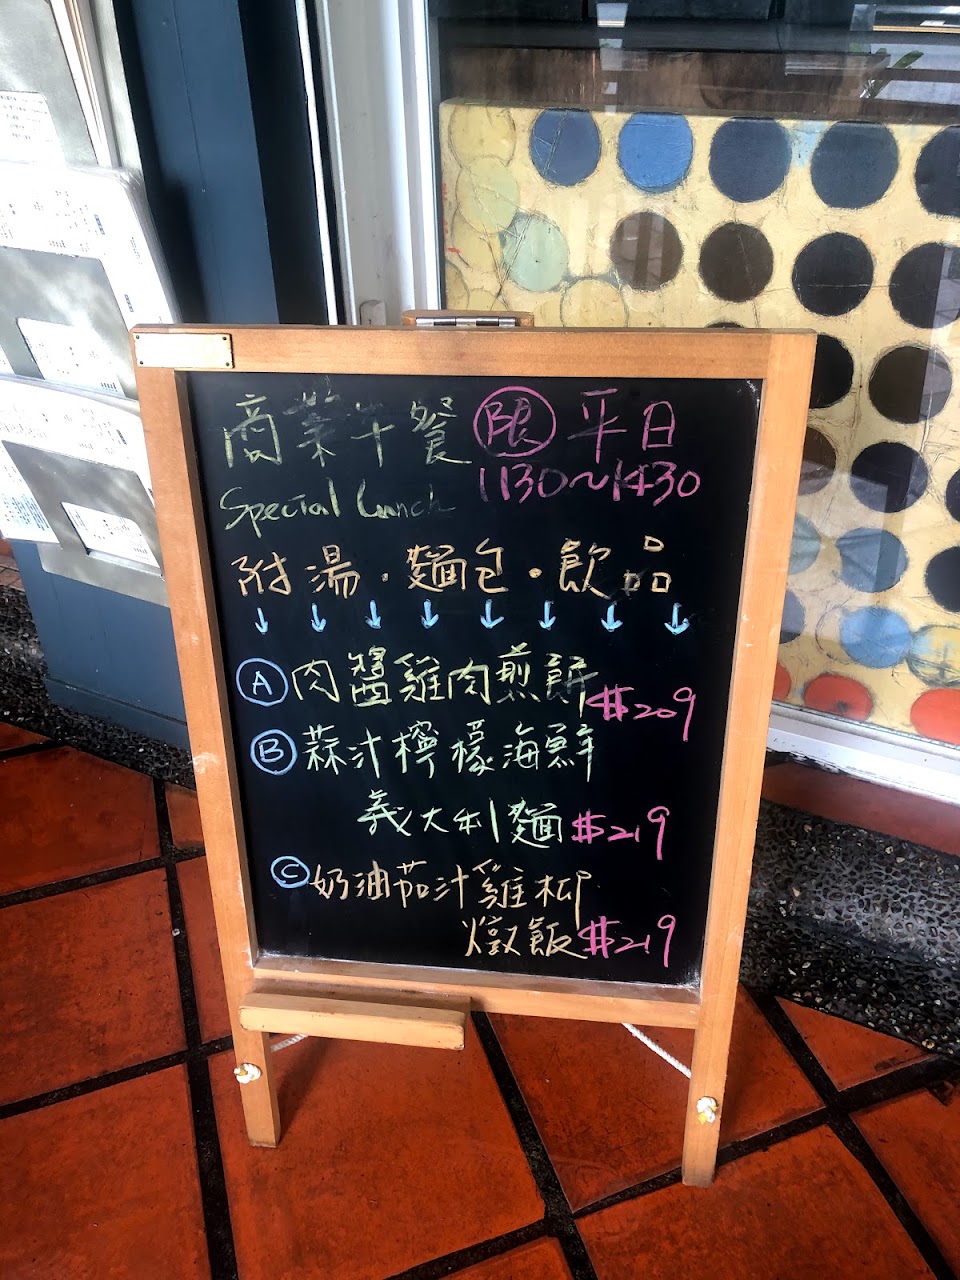 商業午餐 限 平日
Special Lunch 1130~1430
附湯·麵包·飲品
↓ ↓ ↓ ↓ ↓ ↓ ↓ ↓
A 肉醬雞肉煎餅 $209
B 蒜汁檸檬海鮮
義大利麵 $219
C 奶油茄汁雞柳
燉飯 $219